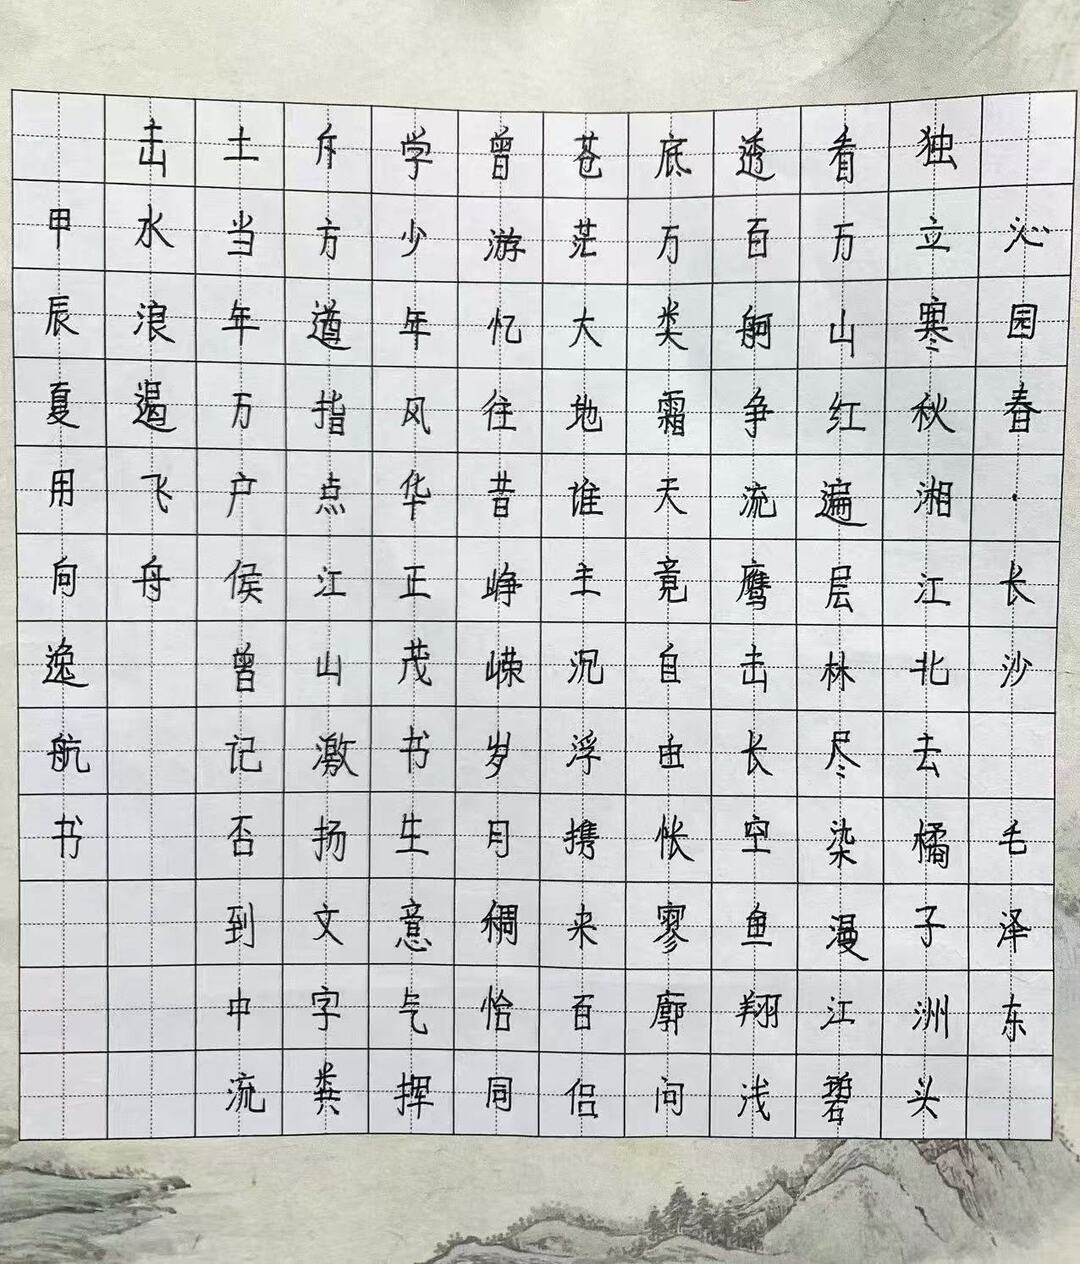 沁园春·长沙 毛泽东
独立寒秋湘江北去橘子洲头
看万山红遍层林尽染漫江碧
透百舸争流鹰击长空鱼翔浅
底万类霜天竟自由怅寥廓问
苍茫大地谁主沉浮携来百侣
曾游忆往昔峥嵘岁月稠恰同
学少年风华正茂书生意气挥
斥方遒指点江山激扬文字粪
土当年万户侯曾记否到中流
击水浪遏飞舟
甲辰夏用向逸航书